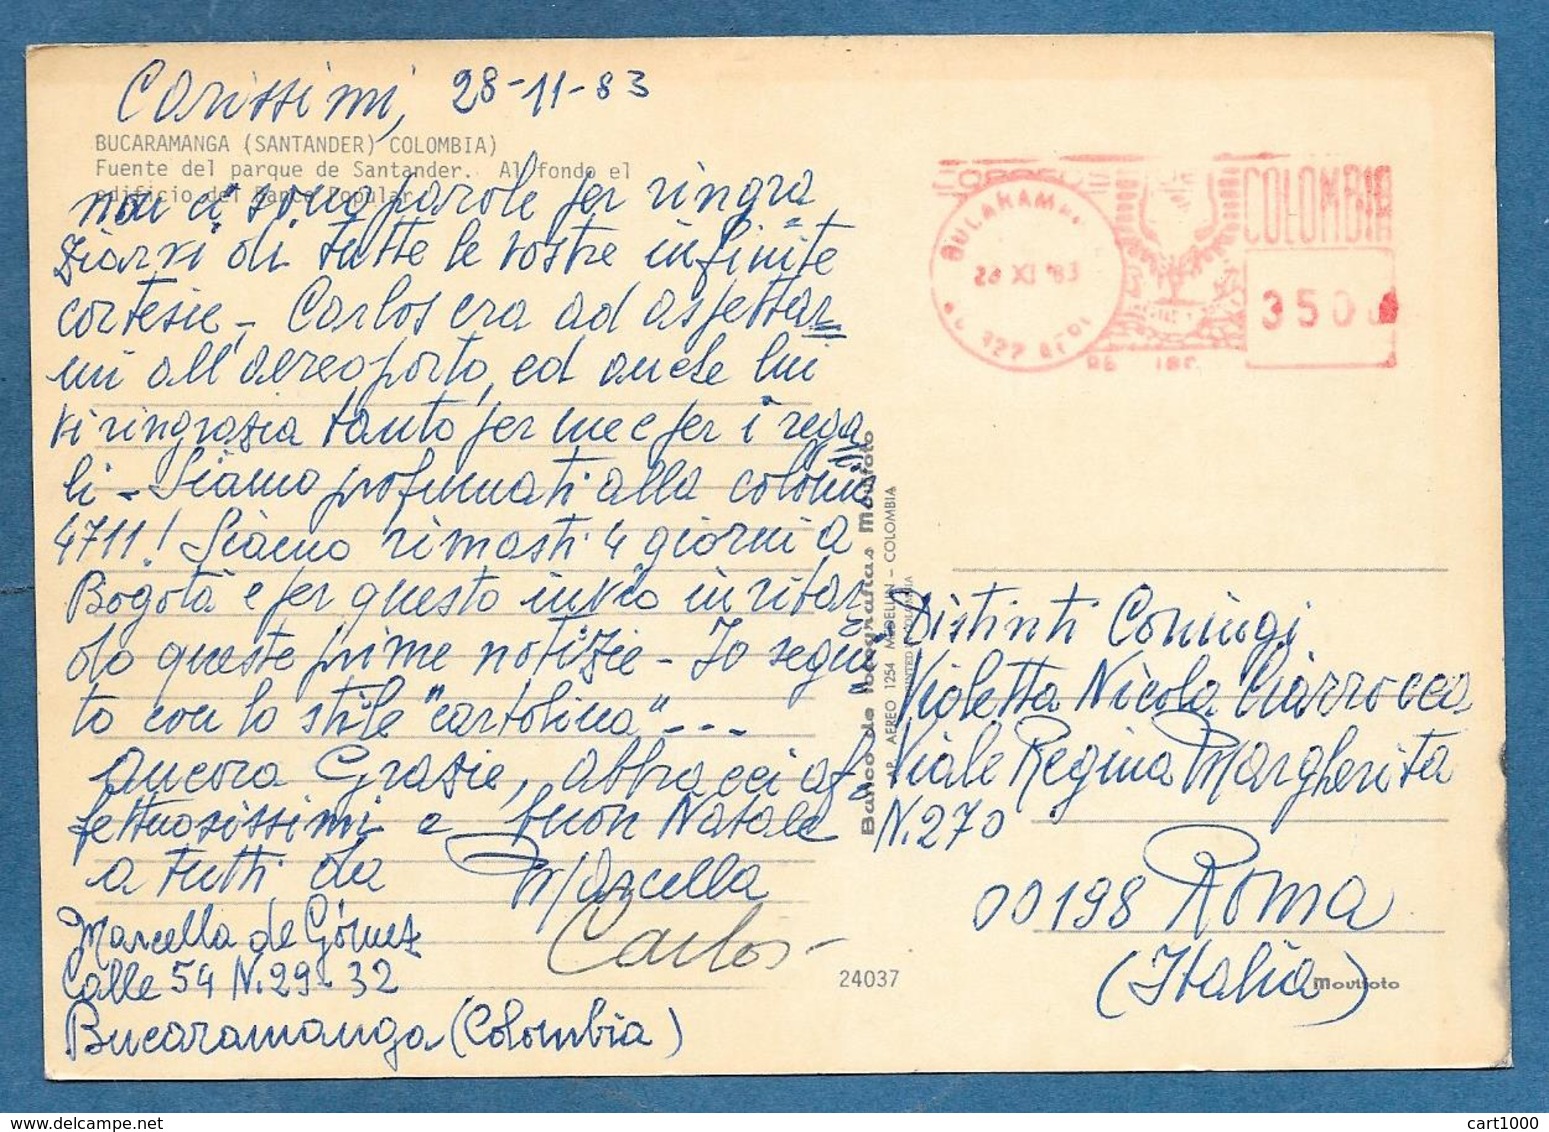 Carissimi, 28-11-83
BUCARAMANGA (SANTANDER) COLOMBIA)
Fuente del parque de Santander. Al fondo el
edificio del Banco Popular.
non ci sono parole per ringra
ziarvi di tutte le vostre infinite
cortesie - Carlos era ad aspettar
mi all'aereoporto, ed anche lui
vi ringrazia tanto per me e per i rega
li - Siamo profumati alla colonia
4711! Siamo rimasti 4 giorni a
Bogotà e per questo invio in ritar
do queste prime notizie - Io segui
to con lo stile "cartolina" - - -
Ancora Grazie, abbracci af
fettuosissimi e buon Natale
a tutti da Marcella
Carlos -
Marcella de Gómez
Calle 54 N. 29-32
Bucaramanga (Colombia)
Banco de fotografias Movifoto
AP. AEREO 1254 MEDELLIN - COLOMBIA
PRINTED IN COLOMBIA
24037
CORREOS
COLOMBIA
28 XI 83
350
Distinti Coniugi
Violetta Nicola Ciarrocca
Viale Regina Margherita
N. 270
00198 Roma
(Italia)
Movifoto
cart1000